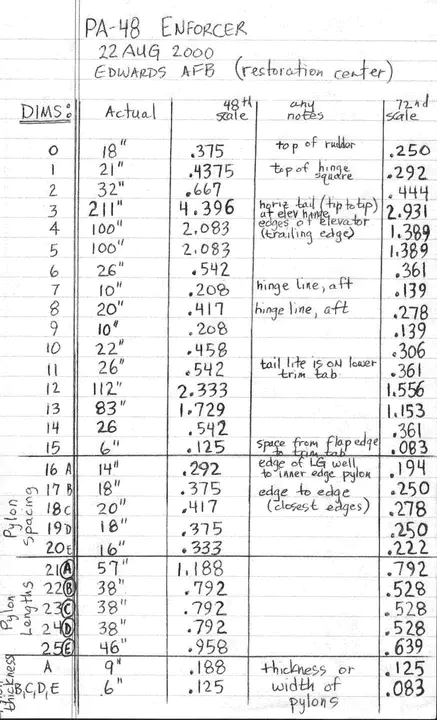 PA-48 ENFORCER
22 AUG 2000
EDWARDS AFB (restoration center)
DIMS: Actual 48th scale any notes 72nd scale
0 18" .375 top of rudder .250
1 21" .4375 top of hinge square .292
2 32" .667 .444
3 211" 4.396 horiz tail (tip to tip) at elev hinge 2.931
4 100" 2.083 edges of elevator (trailing edge) 1.389
5 100" 2.083 1.389
6 26" .542 .361
7 10" .208 hinge line, aft .139
8 20" .417 hinge line, aft .278
9 10" .208 .139
10 22" .458 .306
11 26" .542 tail lite is on lower trim tab .361
12 112" 2.333 1.556
13 83" 1.729 1.153
14 26 .542 .361
15 6" .125 space from flap edge to trim tab .083
Pylon Spacing
16 A 14" .292 edge of LG well to inner edge pylon .194
17 B 18" .375 edge to edge .250
18 C 20" .417 (closest edges) .278
19 D 18" .375 .250
20 E 16" .333 .222
Pylon Lengths
21 A 57" 1.188 .792
22 B 38" .792 .528
23 C 38" .792 .528
24 D 38" .792 .528
25 E 46" .958 .639
thickness
A 9" .188 thickness or .125
B,C,D,E .6" .125 width of pylons .083